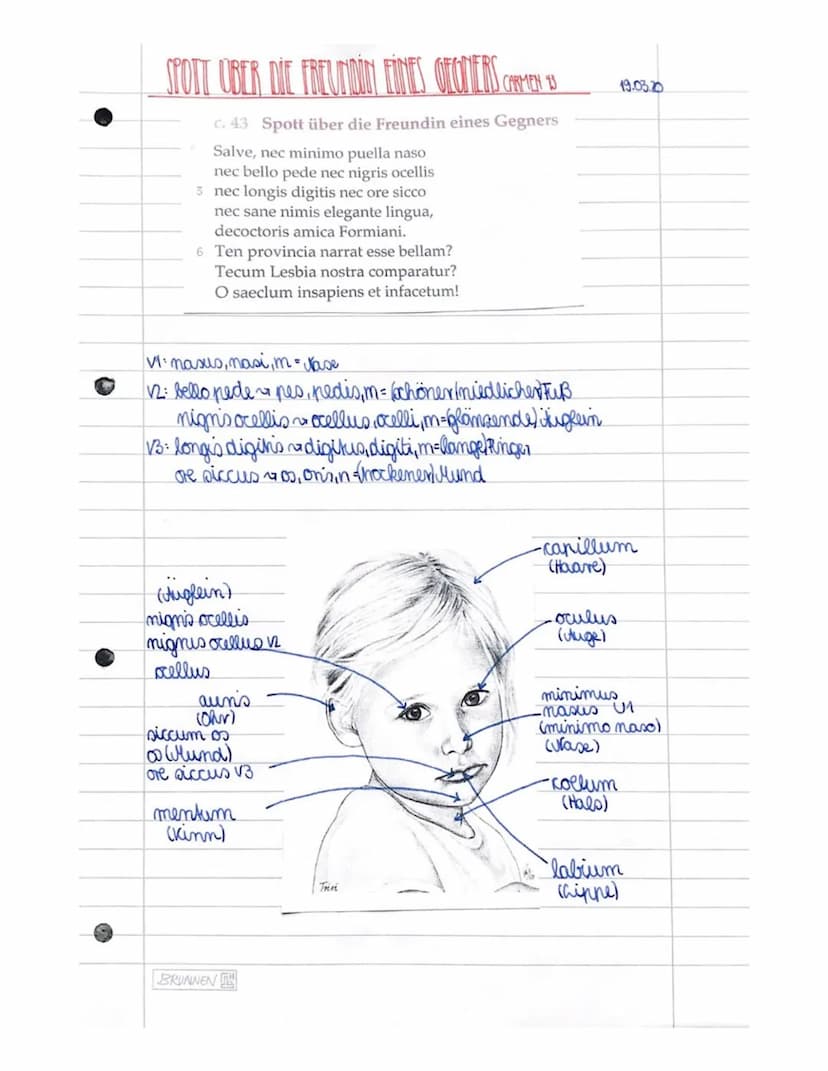 SPOTT ÜBER DIE FREUNDIN EINES GEGNERS CARMEN 43
19.03.20
c. 43 Spott über die Freundin eines Gegners
Salve, nec minimo puella naso
nec bello pede nec nigris ocellis
3 nec longis digitis nec ore sicco
nec sane nimis elegante lingua,
decoctoris amica Formiani.
6 Ten provincia narrat esse bellam?
Tecum Lesbia nostra comparatur?
O saeclum insapiens et infacetum!
V1: nasus, nasi, m = Nase
V2: bello pede ↝ pes, pedis, m = (schöner/niedlicher) Fuß
nigris ocellis ↝ ocellus, ocelli, m = (glänzende) Äuglein
V3: longis digitis ↝ digitus, digiti, m = (lange) Finger
ore siccus ↝ os, oris, n = (trockener) Mund
capillum
(Haare)
(Äuglein)
nigris ocellis
nigrus ocellus V2
ocellus
oculus
(Auge)
auris
(Ohr)
minimus
nasus V1
(minimo naso)
(Nase)
siccum os
os (Mund)
ore siccus V3
collum
(Hals)
mentum
(Kinn)
labium
(Lippe)
Trixi
BRUNNEN